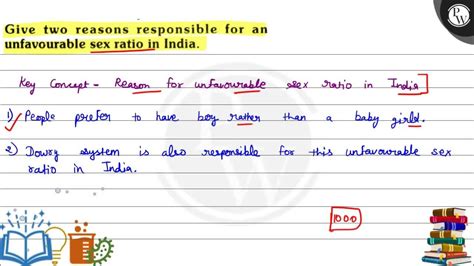 PW
Give two reasons responsible for an
unfavourable sex ratio in India.
Key Concept - Reason for unfavourable sex ratio in India]
1) People prefer to have boy rather than a baby girl.
2) Dowry system is also responsible for this unfavourable sex
ratio in India.
1000